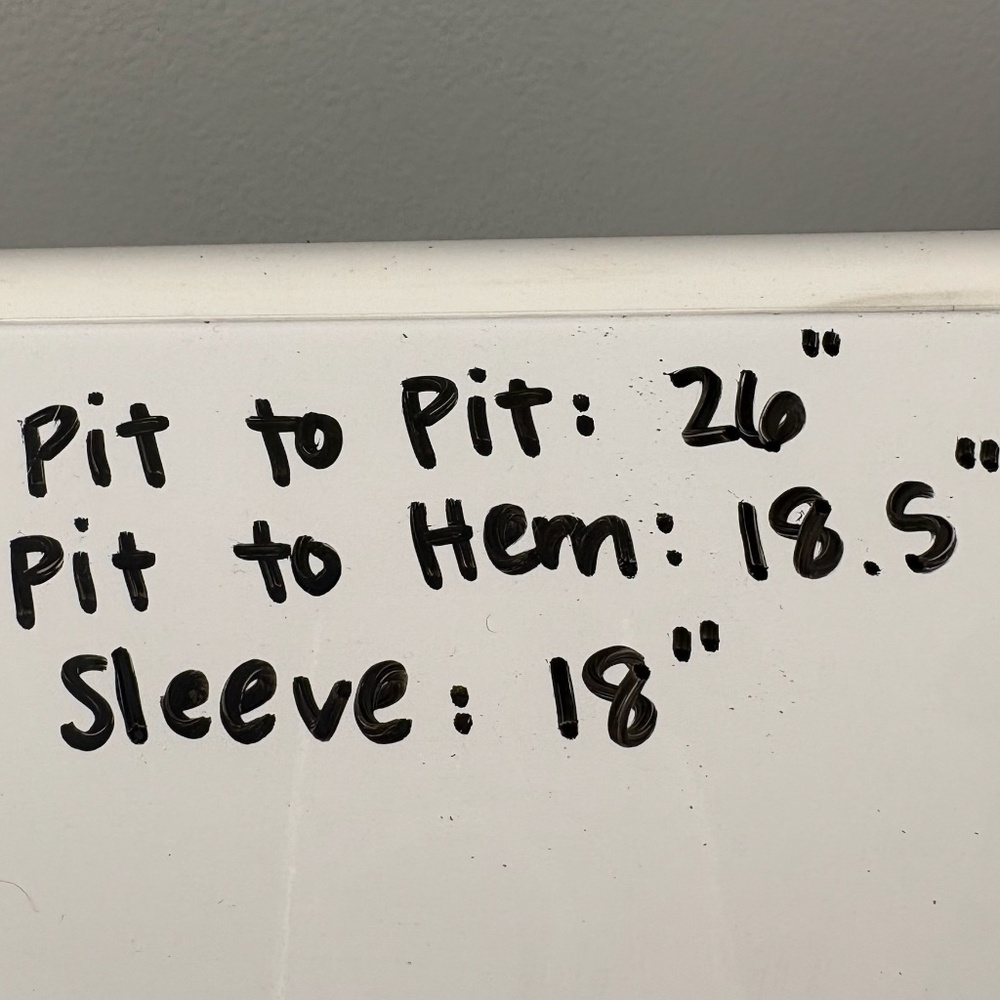 Pit to Pit: 26"
Pit to Hem: 18.5"
Sleeve: 18"